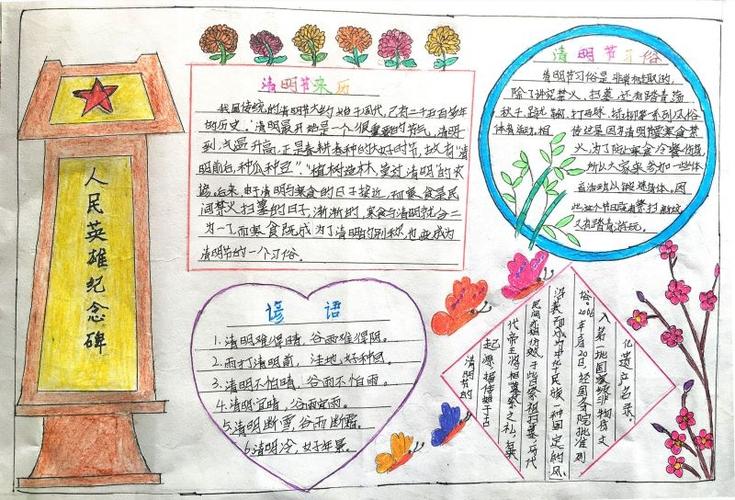 人民英雄纪念碑
清明节来历
我国传统的清明节大约始于周代,已有二千五百多年
的历史。清明最开始是一个很重要的节气,清明一
到,气温升高,正是春耕春种的大好时节,故有"清
明前后,种瓜种豆"。"植树造林,莫过清明"的农
谚。后来,由于清明与寒食的日子接近,而寒食是民
间禁火扫墓的日子,渐渐的,寒食与清明就合二
为一了,而寒食既成为了清明的别称,也变成为
清明节的一个习俗。
清明节习俗
清明节习俗是非常有趣的,
除了讲究禁火、扫墓,还有踏青荡
秋千、踢蹴鞠、打马球、插柳等一系列风俗
体育活动,相
传这是因为清明节要寒食禁
火,为了防止寒食冷餐伤身,
所以大家来参加一些体
育活动以锻炼身体,因
此,这个节日既有祭扫
又有踏青游玩
谚语
1.清明难得晴,谷雨难得阴。
2.雨打清明前,洼地好种田。
3.清明不怕晴,谷雨不怕雨。
4.清明宜晴,谷雨宜雨。
5.清明断雪,谷雨断霜。
6.清明冷,好年景。
清明节的
起源,据传始于古
代帝王将相"墓祭"之礼,后来
民间亦相仿效,于此日祭祖扫墓,历代
沿袭而成为中华民族一种固定的风
俗。2006年5月20日,经国务院批准列
入第一批国家级非物质文
化遗产名录。